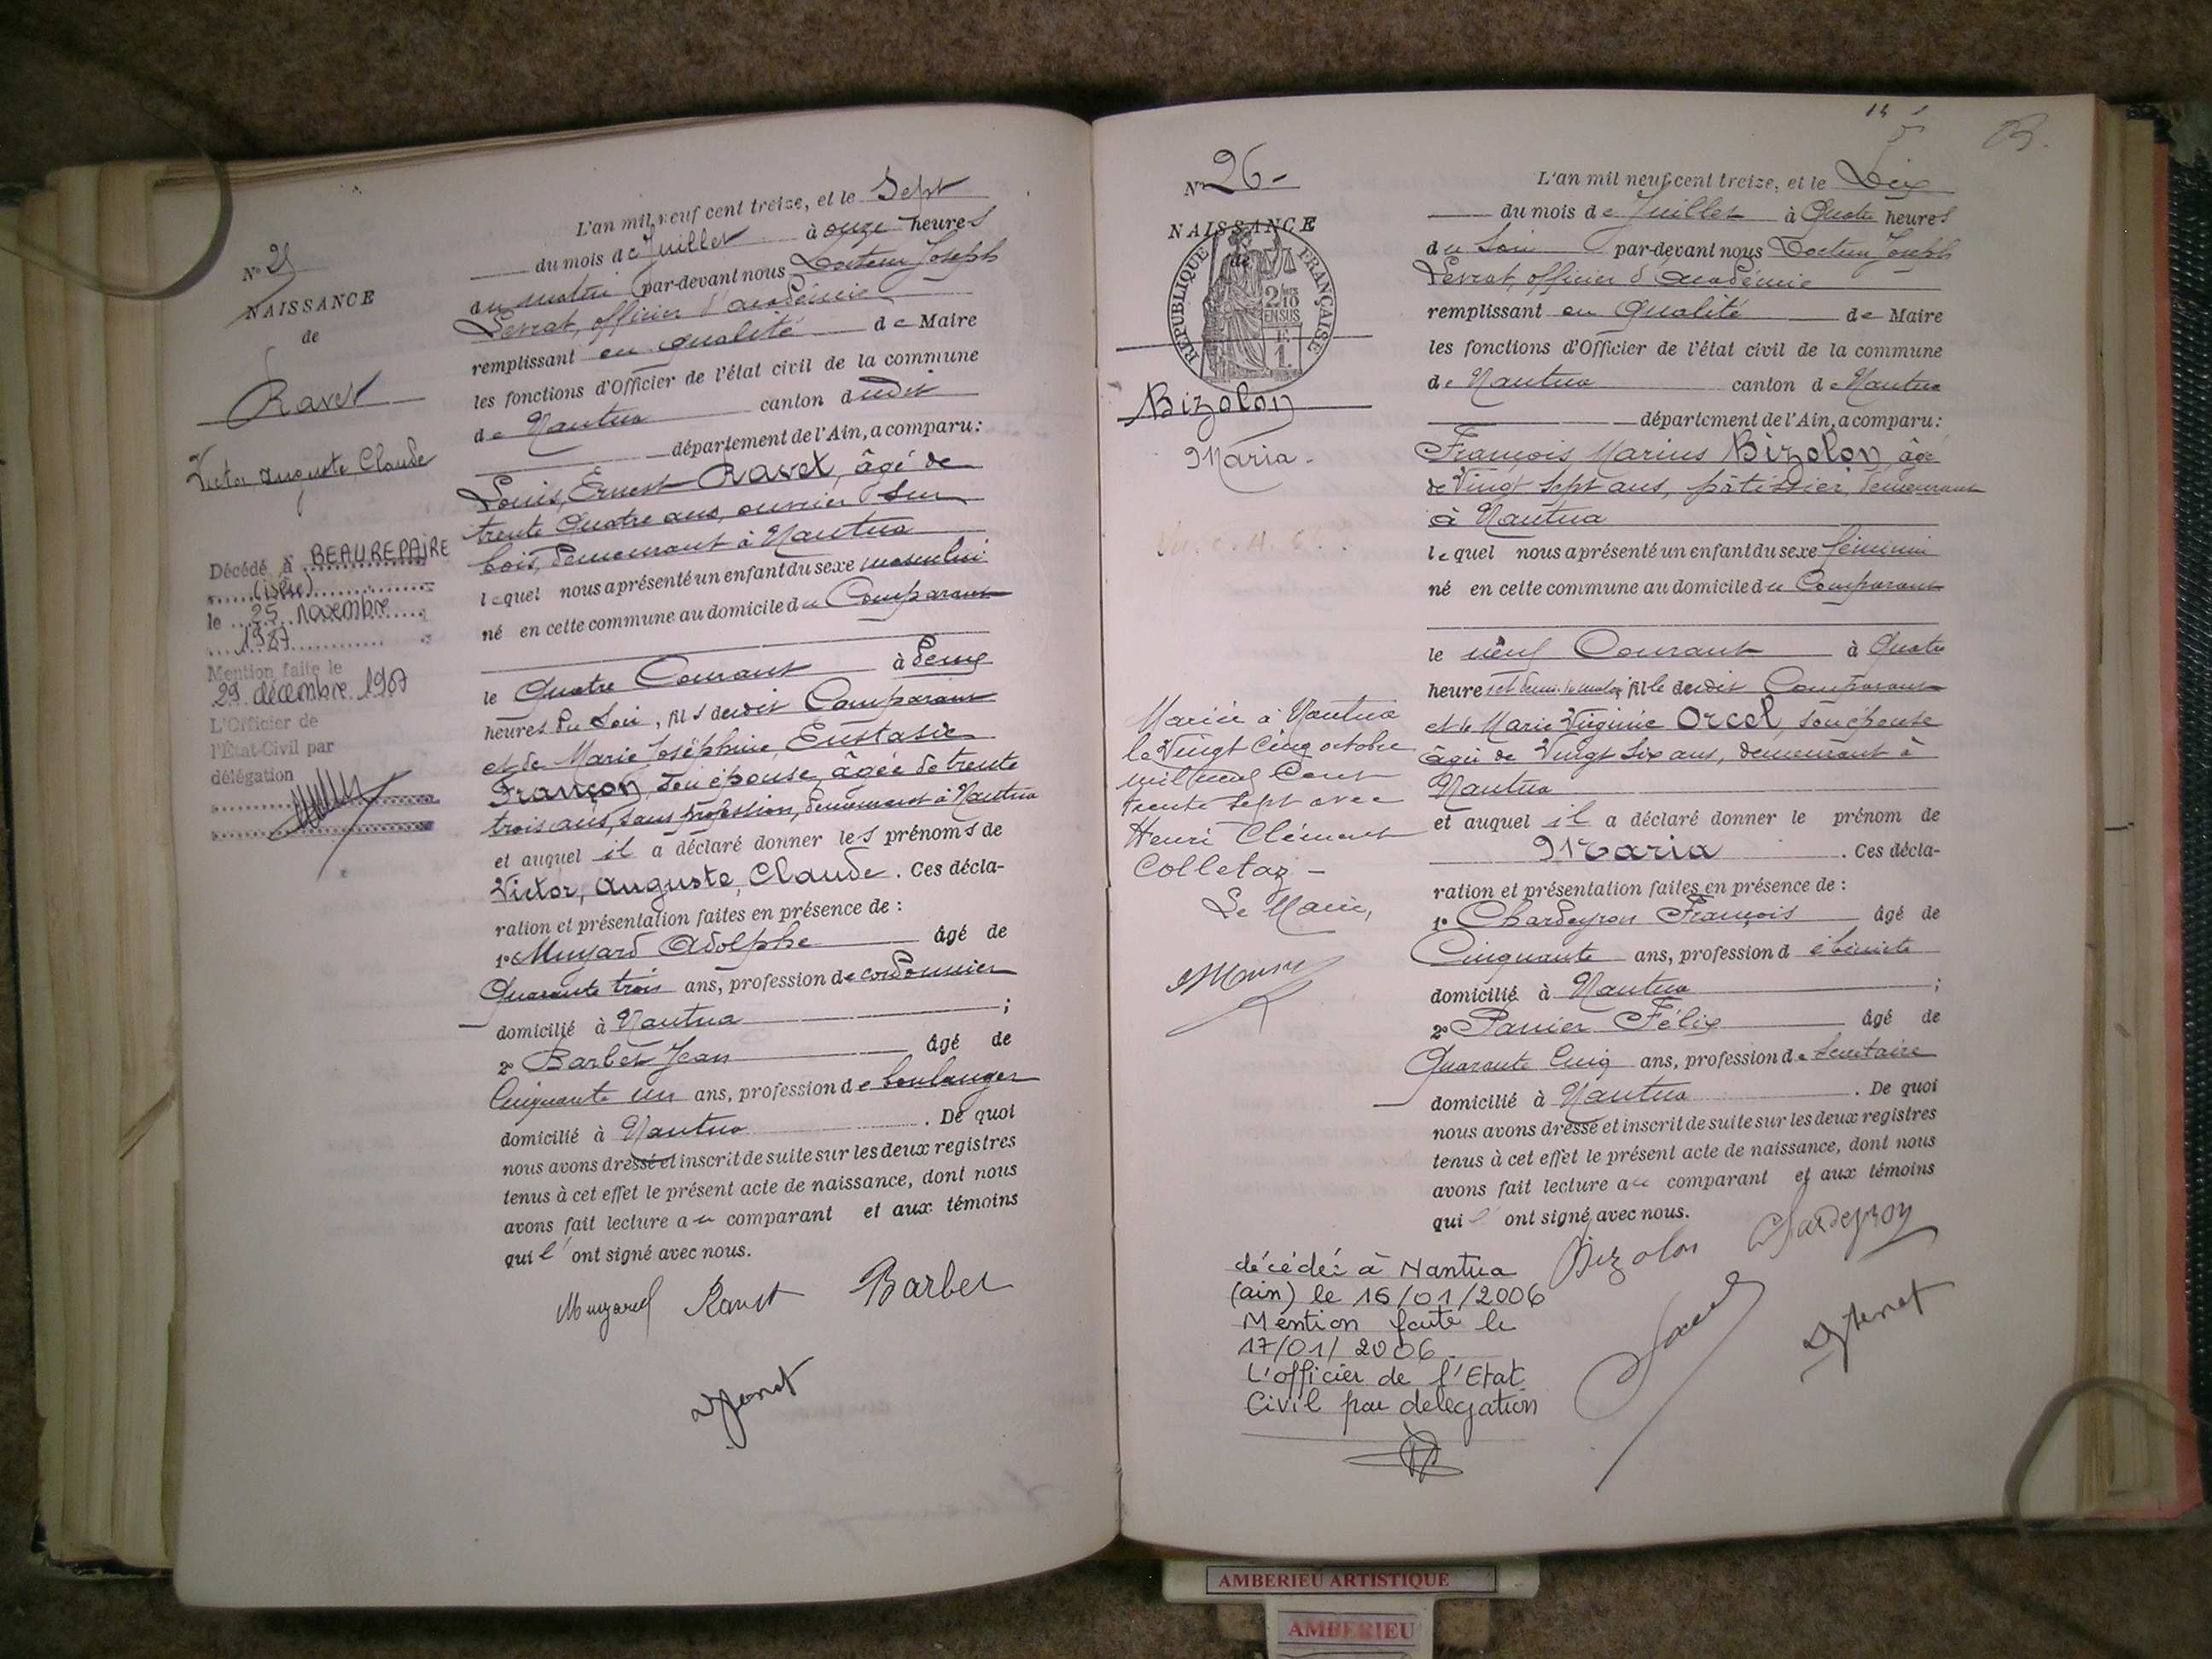 N° 25
NAISSANCE
de
Ravet
Victor, Auguste, Claude
Décédé à BEAUREPAIRE
(isère)
le 25 novembre
1987
Mention faite le
29 décembre 1987
L'Officier de
l'État-Civil par
délégation
L'an mil neuf cent treize, et le Sept
du mois de Juillet à onze heures
du matin par-devant nous Docteur Joseph
Levrat, officier d'académie
remplissant en qualité de Maire
les fonctions d'Officier de l'état civil de la commune
de Nantua canton dudit
département de l'Ain, a comparu:
Louis, Ernest Ravet, âgé de
trente quatre ans, ouvrier sur
bois, demeurant à Nantua
lequel nous a présenté un enfant du sexe masculin
né en cette commune au domicile du Comparant
le Quatre Courant à deux
heures du Soir, fils dudit Comparant
et de Marie Joséphine Eustasie
Françon, son épouse, âgée de trente
trois ans, sans profession, demeurant à Nantua
et auquel il a déclaré donner les prénoms de
Victor, Auguste, Claude. Ces décla-
ration et présentation faites en présence de :
1° Muyard Adolphe âgé de
Quarante trois ans, profession de cordonnier
domicilié à Nantua ;
2° Barbet Jean âgé de
Cinquante un ans, profession de boulanger
domicilié à Nantua. De quoi
nous avons dressé et inscrit de suite sur les deux registres
tenus à cet effet le présent acte de naissance, dont nous
avons fait lecture au comparant et aux témoins
qui l' ont signé avec nous.
Muyard Ravet Barbet
14
N° 26 -
NAISSANCE
de
RÉPUBLIQUE FRANÇAISE
Bizolon
Maria -
Mariée à Nantua
le Vingt Cinq octobre
mil neuf Cent
trente sept avec
Henri Clément
Colletaz -
Le Maire,
L'an mil neuf cent treize, et le Dix
du mois de Juillet à Quatre heures
du Soir par-devant nous Docteur Joseph
Levrat, officier d'académie
remplissant en qualité de Maire
les fonctions d'Officier de l'état civil de la commune
de Nantua canton de Nantua
département de l'Ain, a comparu:
François Marius Bizolon, âgé
de Vingt Sept ans, pâtissier, demeurant
à Nantua
lequel nous a présenté un enfant du sexe féminin
né en cette commune au domicile du Comparant
le neuf Courant à Quatre
heures et demi du matin, fille dudit Comparant
et de Marie Virginie Orcel, son épouse
âgée de Vingt Six ans, demeurant à
Nantua
et auquel il a déclaré donner le prénom de
Maria. Ces décla-
ration et présentation faites en présence de :
1° Chardeyron François âgé de
Cinquante ans, profession d ébéniste
domicilié à Nantua ;
2° Panier Félix âgé de
Quarante Cinq ans, profession de Secrétaire
domicilié à Nantua. De quoi
nous avons dressé et inscrit de suite sur les deux registres
tenus à cet effet le présent acte de naissance, dont nous
avons fait lecture au comparant et aux témoins
qui l' ont signé avec nous.
Bizolon Chardeyron
décédée à Nantua
(ain) le 16/01/2006
Mention faite le
17/01/2006.
L'officier de l'Etat
Civil par delegation
AMBERIEU ARTISTIQUE
AMBERIEU